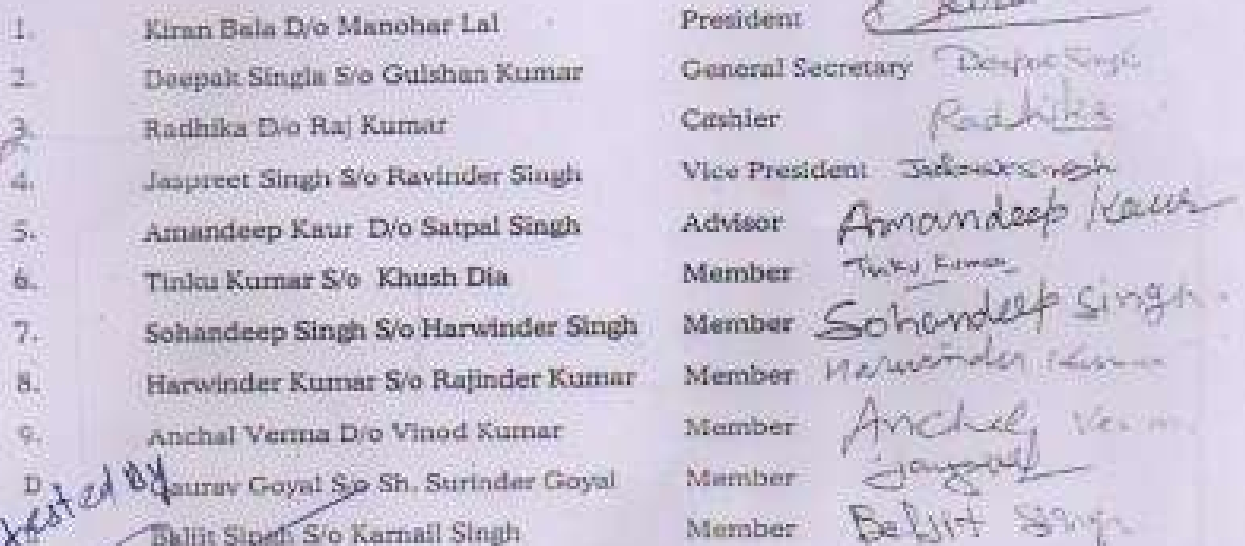 1. Kiran Bala D/o Manohar Lal President
2. Deepak Singla S/o Gulshan Kumar General Secretary Deepak Singla
3. Radhika D/o Raj Kumar Cashier Radhika
4. Jaspreet Singh S/o Ravinder Singh Vice President
5. Amandeep Kaur D/o Satpal Singh Advisor Amandeep Kaur
6. Tinku Kumar S/o Khush Dia Member Tinku Kumar
7. Sohandeep Singh S/o Harwinder Singh Member Sohandeep Singh
8. Harwinder Kumar S/o Rajinder Kumar Member Harwinder Kumar
9. Anchal Verma D/o Vinod Kumar Member Anchal Verma
Gaurav Goyal S/o Sh. Surinder Goyal Member
Baljit Singh S/o Karnail Singh Member Beljit Singh